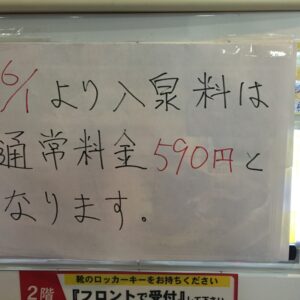 6/1より入泉料は
通常料金590円と
なります。
靴のロッカーキーをお持ちください
2階
『フロントで受付』して下さい